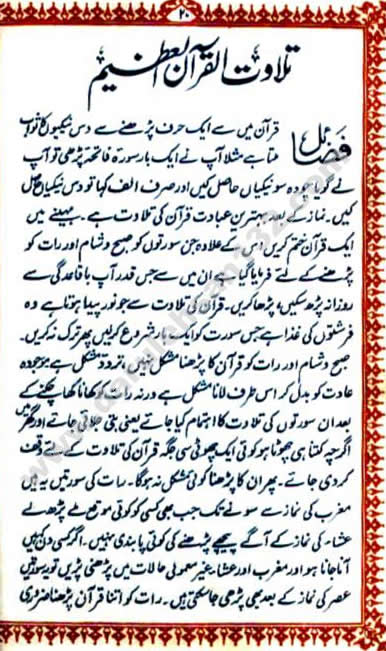 ۲۰
تلاوت القرآن العظیم
فضائل
قرآن میں سے ایک حرف پڑھنے سے دس نیکیوں کا ثواب
ملتا ہے مثلاً آپ نے ایک بار سورۃ فاتحہ پڑھی تو آپ
نے گویا چودہ سو نیکیاں حاصل کیں اور صرف الف کہا تو دس نیکیاں حاصل
کیں۔ نماز کے بعد بہترین عبادت قرآن کی تلاوت ہے۔ مہینے میں
ایک قرآن ختم کریں اس کے علاوہ جن سورتوں کو صبح و شام اور رات کو
پڑھنے کے لئے فرمایا گیا ہے ان میں سے جس قدر آپ باقاعدگی سے
روزانہ پڑھ سکیں، پڑھا کریں۔ قرآن کی تلاوت سے جو نور پیدا ہوتا ہے وہ
فرشتوں کی غذا ہے جس سورت کو ایک بار شروع کر لیں پھر ترک نہ کریں۔
صبح و شام اور رات کو قرآن کا پڑھنا مشکل نہیں، تردد مشکل ہے موجودہ
عادت کو بدل کر اس طرف لانا مشکل ہے ورنہ رات کو کھانا کھا چکنے کے
بعد ان سورتوں کی تلاوت کا اہتمام کیا جائے یعنی بتی جلائی جائے اور گھر میں
اگرچہ کتنا ہی چھوٹا ہو کوئی ایک چھوٹی سی جگہ قرآن کی تلاوت کے لئے وقف
کر دی جائے۔ پھر ان کا پڑھنا کوئی مشکل نہ ہوگا۔ رات کی سورتیں یہ ہیں
مغرب کی نماز سے سونے تک جب بھی کسی کو کوئی موقع ملے پڑھ لے
عشاء کی نماز کے آگے پیچھے پڑھنے کی کوئی پابندی نہیں۔ اگر کسی دن کہیں
آنا جانا ہو اور مغرب اور عشاء غیر معمولی حالات میں پڑھنی پڑیں تو یہ سورتیں
عصر کی نماز کے بعد بھی پڑھی جا سکتی ہیں۔ رات کو اتنا قرآن پڑھنا ضروری